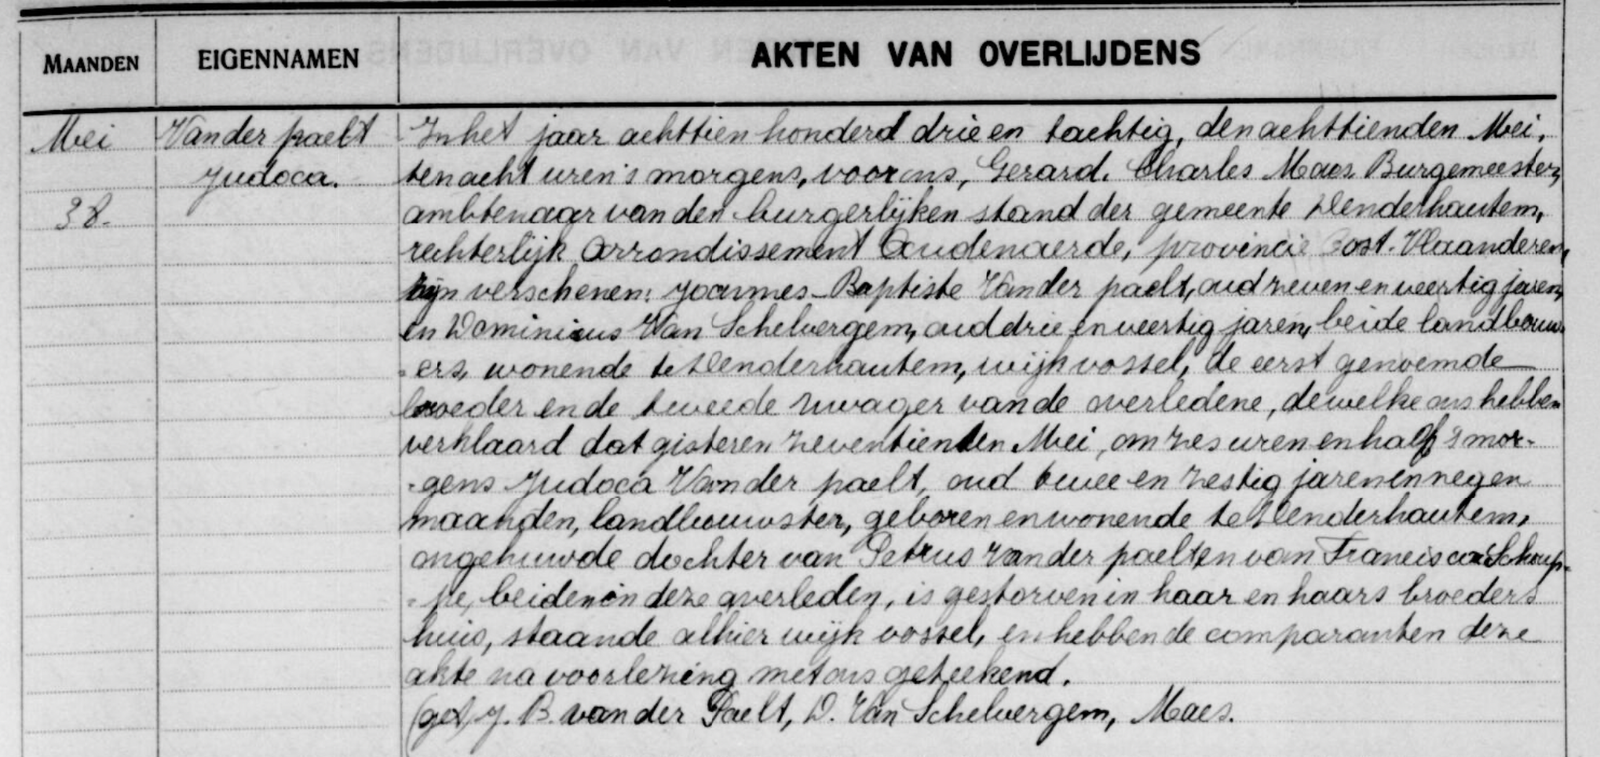 MAANDEN EIGENNAMEN AKTEN VAN OVERLIJDENS
Mei Vander paelt In het jaar achttien honderd drie en tachtig, den achttienden Mei,
Judoca. ten acht uren 's morgens, voor ons, Gerard. Charles Maes Burgemeester,
38. ambtenaar van den burgerlijken stand der gemeente Denderhautem,
rechterlijk arrondissement Oudenaerde, provincie Oost-Vlaanderen,
zijn verschenen: Joannes-Baptiste Vander paelt, oud zeven en veertig jaren,
en Dominicus Van Schelvergem, oud drie en veertig jaren, beide landbouw-
-ers, wonende te Denderhautem, wijk vossel, de eerst genoemde
broeder en de tweede zwager van de overledene, dewelke ons hebben
verklaard dat gisteren zeventienden Mei, om zes uren en half 's mor-
-gens Judoca Vander paelt, oud twee en zestig jaren en negen
maanden, landbouwster, geboren en wonende te Denderhautem,
ongehuwde dochter van Petrus Vander paelt en van Francisca Schoup-
-pe, beiden in deze overleden, is gestorven in haar en haars broeders
huis, staande alhier wijk vossel, en hebben de comparanten deze
akte na voorlezing met ons geteekend.
(get) J. B. van der Paelt, D. Van Schelvergem, Maes.